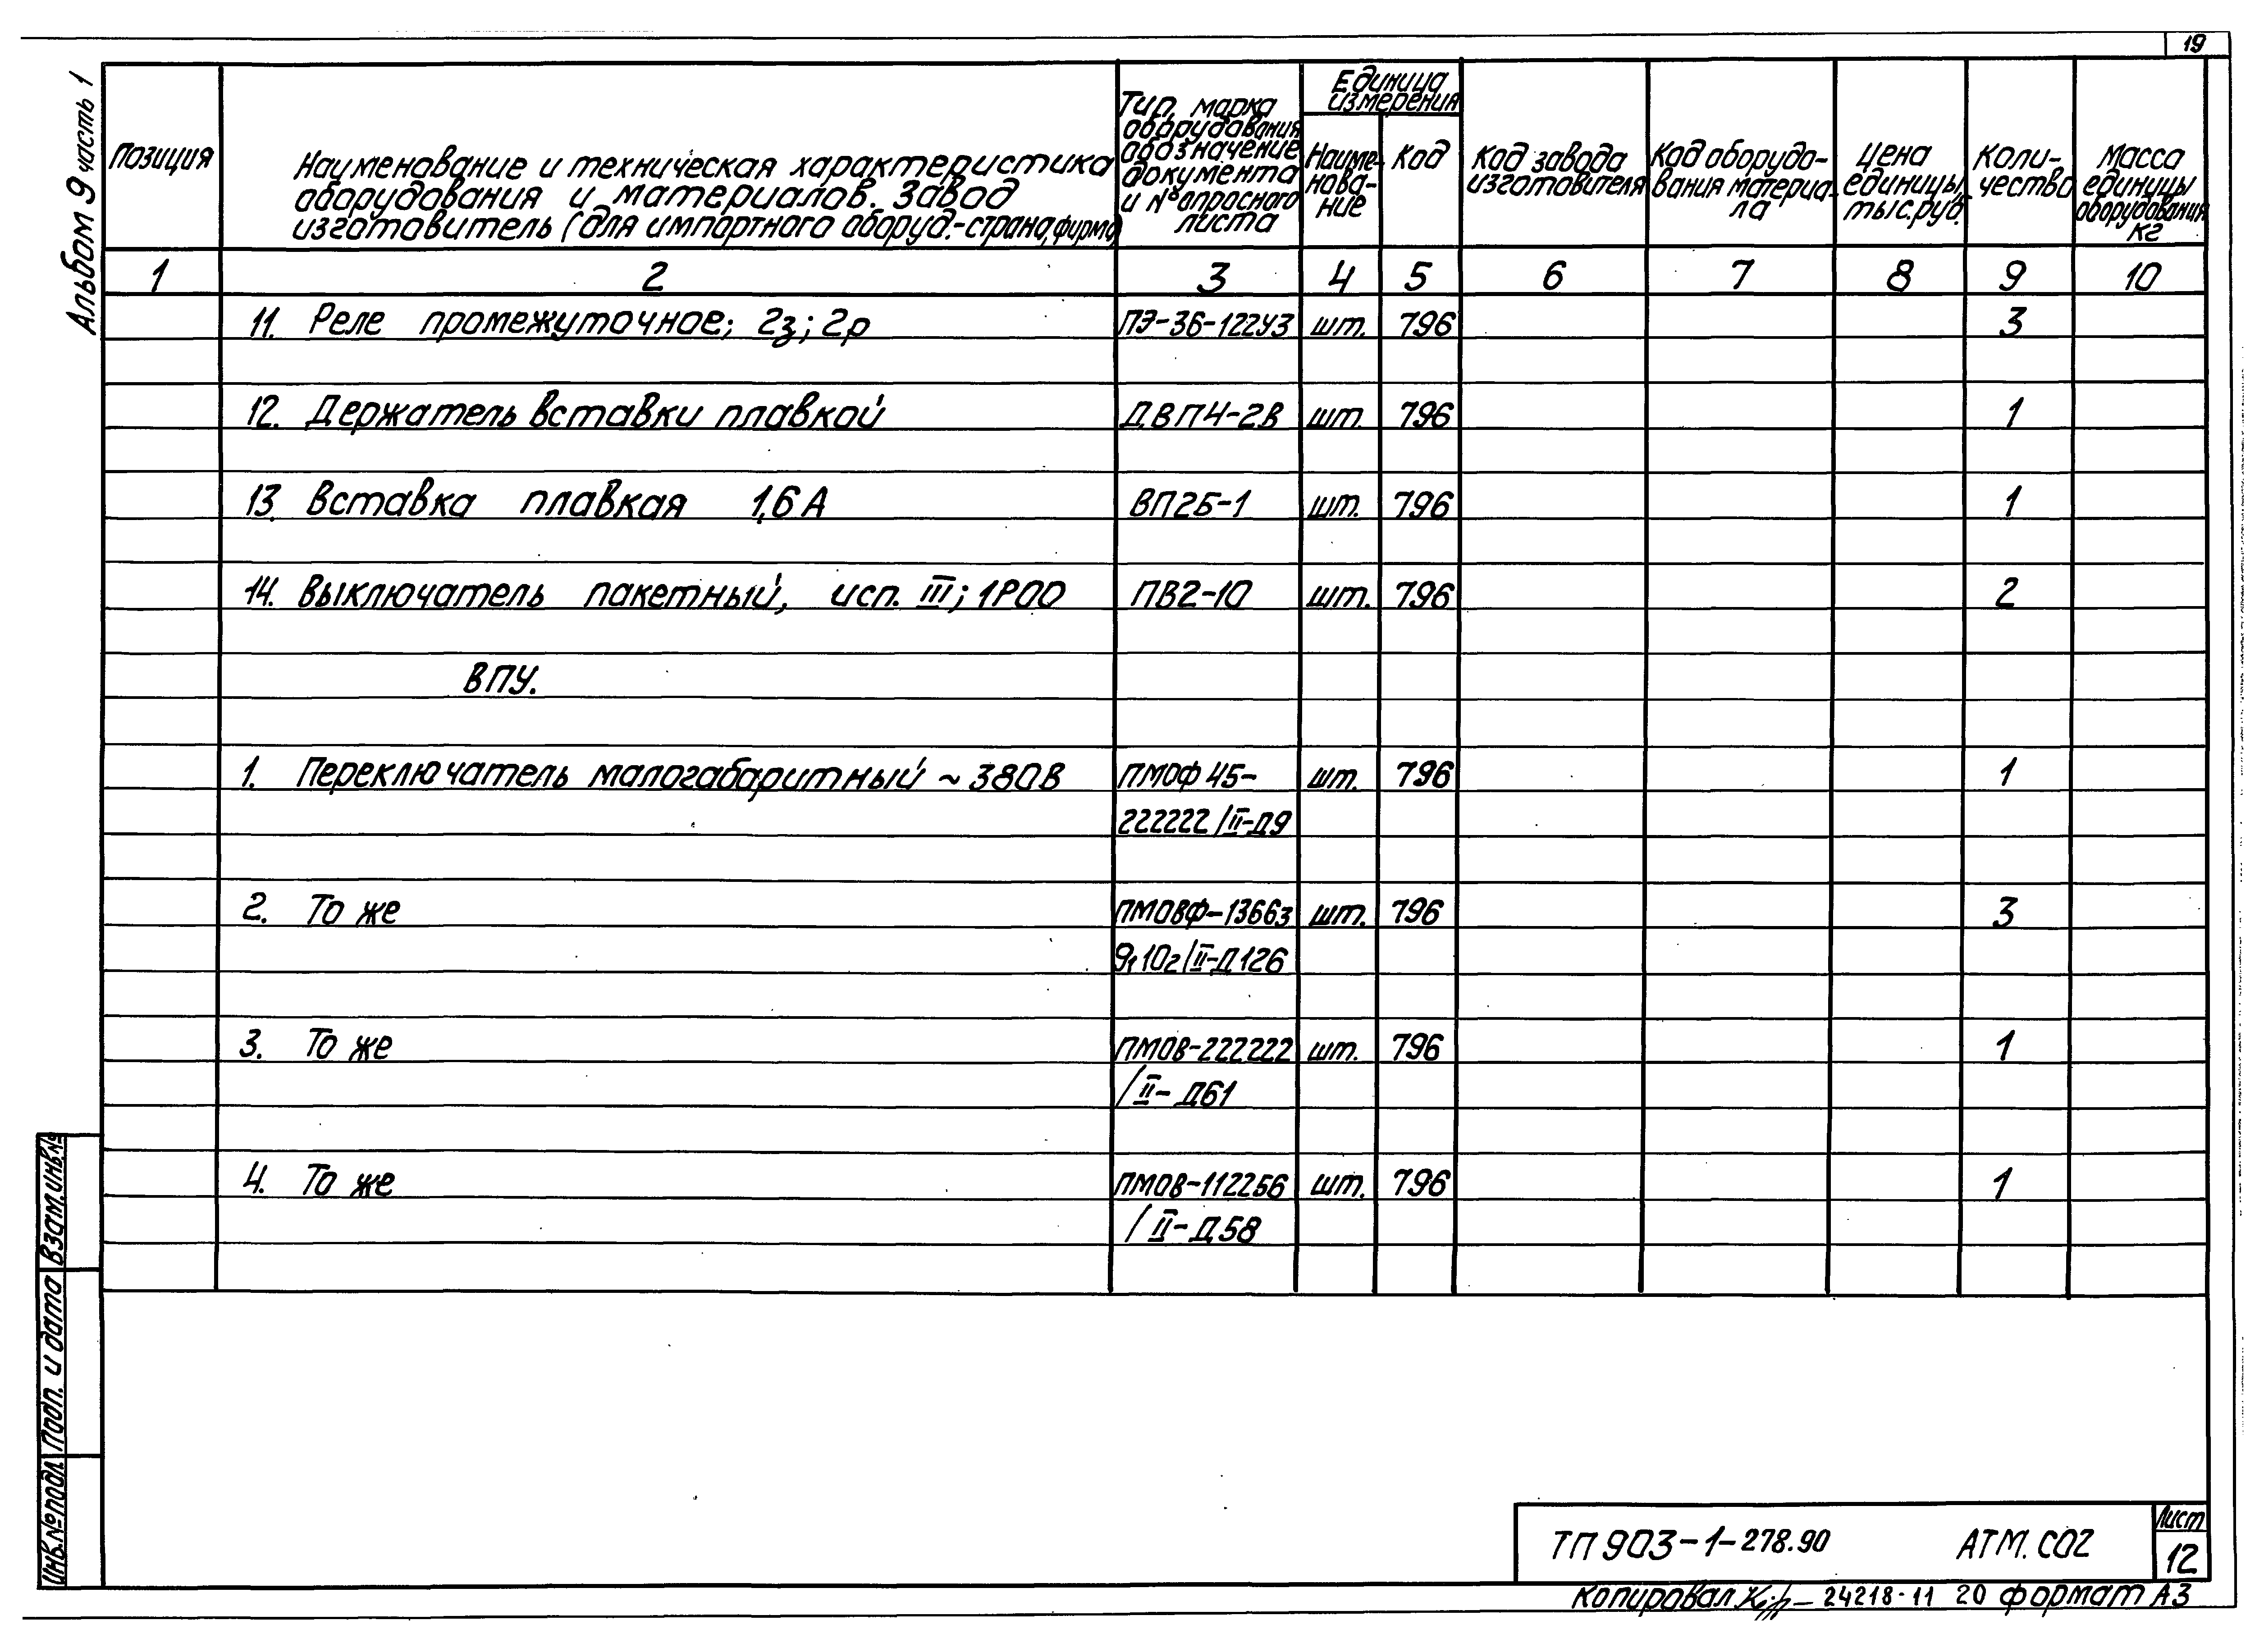 19
Альбом 9 часть 1
Позиция
Наименование и техническая характеристика
оборудования и материалов. Завод
изготовитель (для импортного оборуд.-страна, фирма)
Тип, марка
оборудования
обозначение
документа
и № опросного
листа
Единица
измерения
Наиме-
нова-
ние
Код
Код завода
изготовителя
Код оборудо-
вания материа-
ла
Цена
единицы,
тыс.руб.
Коли-
чество
Масса
единицы
оборудования
кг
1 2 3 4 5 6 7 8 9 10
11. Реле промежуточное; 2з; 2р ПЭ-36-122У3 шт. 796 3
12. Держатель вставки плавкой ДВП4-2В шт. 796 1
13. Вставка плавкая 1,6 А ВП2Б-1 шт. 796 1
14. Выключатель пакетный, исп. III; 1Р00 ПВ2-10 шт. 796 2
ВПУ.
1. Переключатель малогабаритный ~ 380В ПМОФ 45- шт. 796 1
222222/II-Д9
2. То же ПМОВФ-1366з шт. 796 3
9110г/II-Д126
3. То же ПМОВ-222222 шт. 796 1
/II-Д61
4. То же ПМОВ-112256 шт. 796 1
/II-Д58
Взам.инв.№
Подп. и дата
Инв.№ подл.
ТП 903-1-278.90 АТМ. СО2
Лист
12
Копировал 24218-11 20 формат А3